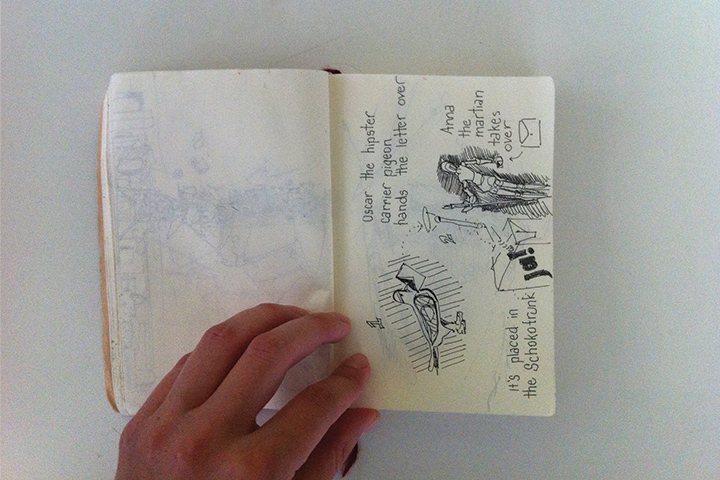 Oscar the hipster
carrier pigeon
hands the letter over
1
Anna
the
martian
takes
over
2
Ja!
It's placed in
the Schokotrunk